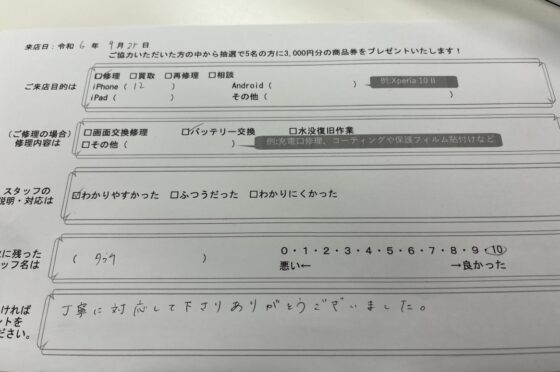 来店日：令和 6 年 9 月 25 日
ご協力いただいた方の中から抽選で5名の方に3,000円分の商品券をプレゼントいたします！
ご来店目的は
☑修理 □買取 □再修理 □相談
iPhone ( 12 ) Android ( ) 例:Xperia 10 Ⅱ
iPad ( ) その他 ( )
(ご修理の場合)
修理内容は
□画面交換修理 ☑バッテリー交換 □水没復旧作業
□その他 ( ) 例:充電口修理、コーティングや保護フィルム貼付けなど
スタッフの
説明・対応は
☑わかりやすかった □ふつうだった □わかりにくかった
に残った
ッフ名は
( )
0・1・2・3・4・5・6・7・8・9・10
悪い← →良かった
ければ
ントを
ださい。
丁寧に対応して下さりありがとうございました。